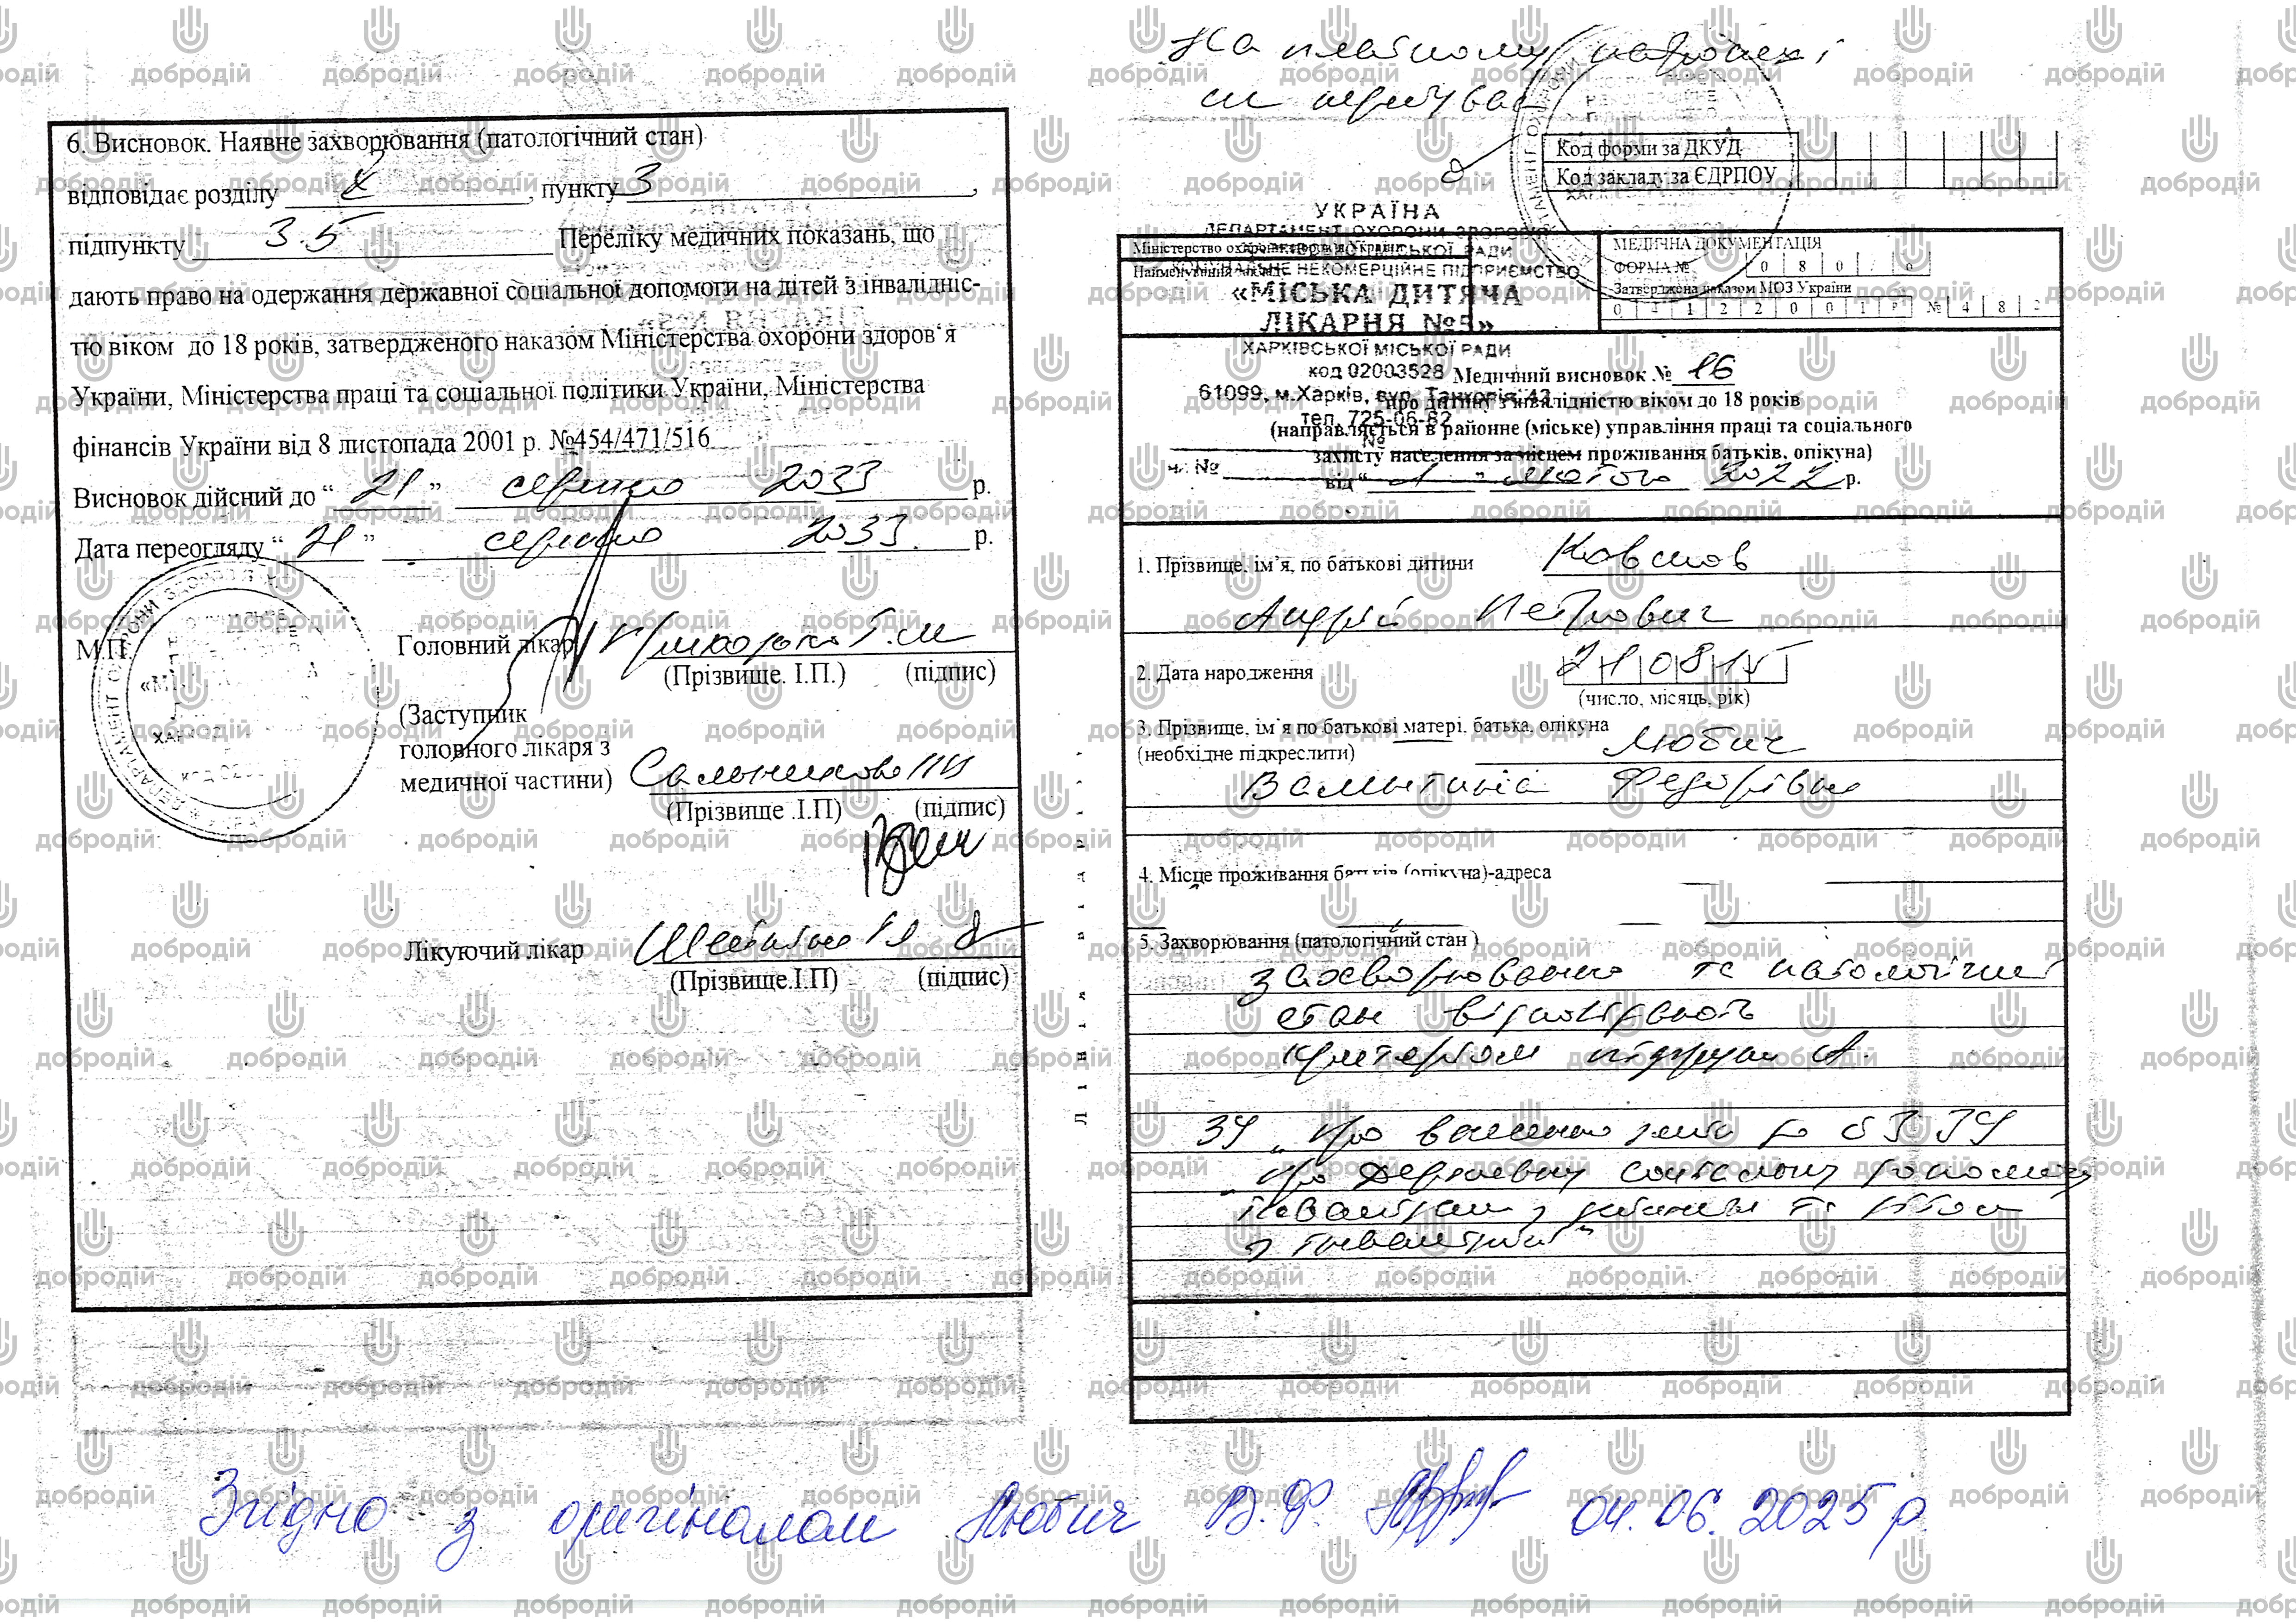 6. Висновок. Наявне захворювання (патологічний стан)
відповідає розділу X, пункту 3,
підпункту 3.5 Переліку медичних показань, що
дають право на одержання державної соціальної допомоги на дітей з інвалідніс-
тю віком до 18 років, затвердженого наказом Міністерства охорони здоров'я
України, Міністерства праці та соціальної політики України, Міністерства
фінансів України від 8 листопада 2001 р. №454/471/516
Висновок дійсний до “ 21 ” серпня 2033 р.
Дата переогляду “ 21 ” серпня 2033 р.
М.П.
Головний лікар
(Прізвище. І.П.) (підпис)
(Заступник
головного лікаря з
медичної частини) Сальникова
(Прізвище .І.П) (підпис)
Лікуючий лікар
(Прізвище.І.П) (підпис)
На платному
Код форми за ДКУД
Код закладу за ЄДРПОУ
УКРАЇНА
ДЕПАРТАМЕНТ ОХОРОНИ ЗДОРОВ'Я
Міністерство охорони здоров'я України
Найменування закладу
НЕКОМЕРЦІЙНЕ ПІДПРИЄМСТВО
«МІСЬКА ДИТЯЧА
ЛІКАРНЯ №5»
ХАРКІВСЬКОЇ МІСЬКОЇ РАДИ
код 02003528
61099, м.Харків, вул. Танкопія, 43
тел. 725-06-62
МЕДИЧНА ДОКУМЕНТАЦІЯ
ФОРМА № 0 8 0 / о
Затверджена наказом МОЗ України
0 4 1 2 2 0 0 1 р № 4 8 2
Медичний висновок № 16
про дитину з інвалідністю віком до 18 років
(направляється в районне (міське) управління праці та соціального
захисту населення за місцем проживання батьків, опікуна)
від “ 1 ” лютого 2022 р.
1. Прізвище, ім’я, по батькові дитини Ковшов
Андрій Петрович
2. Дата народження 21 08 15
(число, місяць, рік)
3. Прізвище, ім`я по батькові матері, батька, опікуна
(необхідне підкреслити) Любич
Валентина Федорівна
4. Місце проживання батьків (опікуна)-адреса
5. Захворювання (патологічний стан )
захворювання та патологічний
стан відповідають
критеріям підгрупи А.
ЗУ „Про
„Про державну соціальну допомогу
інвалідам з дитинства та дітям
з інвалідністю“
Згідно з оригіналом Любич В.Ф. 04.06.2025 р
добродій